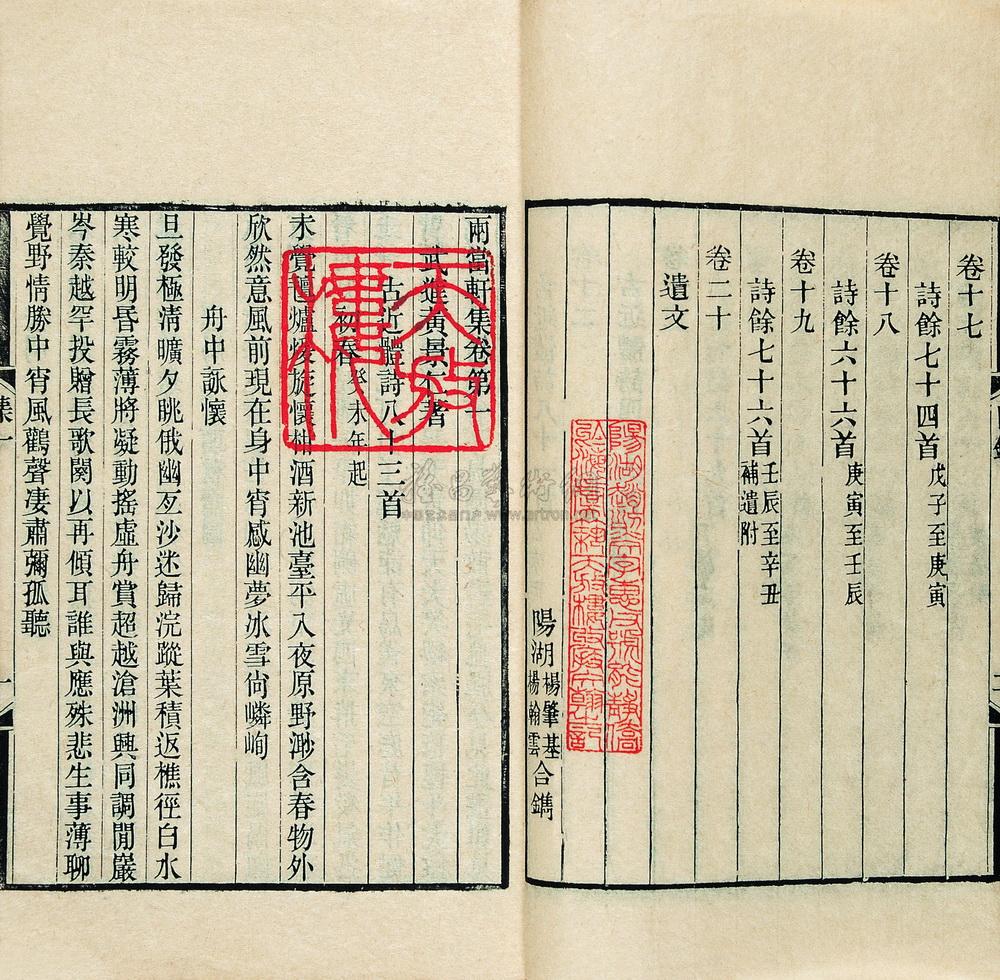 卷十七
詩餘七十四首戊子至庚寅
卷十八
詩餘六十六首庚寅至壬辰
卷十九
詩餘七十六首壬辰至辛丑補遺附
卷二十
遺文
陽湖楊肇基楊翰雲合鐫
兩當軒集卷第一
武進黃景仁著
古近體詩八十三首
初春癸未年起
未覺氊爐煖旋懷柑酒新池臺平入夜原野渺含春物外
欣然意風前現在身中宵感幽夢冰雪尙嶙峋
舟中詠懷
旦發極清曠夕眺俄幽亙沙迷歸浣蹤葉積返樵徑白水
寒較明昏霧薄將凝動搖虛舟賞超越滄洲興同調閒巖
岑秦越罕投贈長歌闋以再傾耳誰與應殊悲生事薄聊
覺野情勝中宵風鸛聲凄肅彌孤聽
天放樓
集一
www.artron